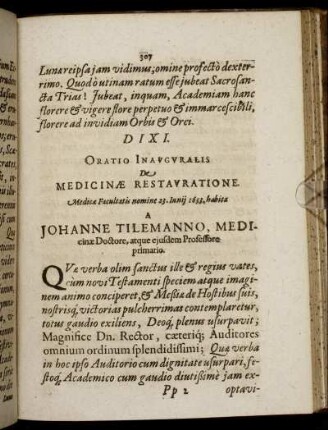 307
Lunæ reipsa jam vidimus, omine profectò dexter-
rimo. Quod ò utinam ratum esse jubeat Sacrosan-
cta Trias! Jubeat, inquam, Academiam hanc
florere & vigere flore perpetuo & immarcescibili,
florere ad invidiam Orbis & Orci.
DIXI.
ORATIO INAVGVRALIS
De
MEDICINÆ RESTAVRATIONE
Medicæ Facultatis nomine 23. Iunij 1653. habita
A
JOHANNE TILEMANNO, MEDI-
cinæ Doctore, atque ejusdem Professore
primario.
QVæ verba olim sanctus ille & regius vates,
cùm novi Testamenti speciem atque imagi-
nem animo conciperet, & Messiæ de Hostibus suis,
nostrisq; victorias pulcherrimas contemplaretur,
totus gaudio exiliens, Deoq; plenus usurpavit;
Magnifice Dn. Rector, cæteriq; Auditores
omnium ordinum splendidissimi; Quæ verba
in hoc ipso Auditorio cum dignitate usurpari, fe-
stoq; Academico cum gaudio diutissimè jam ex-
Pp 2 optavi-